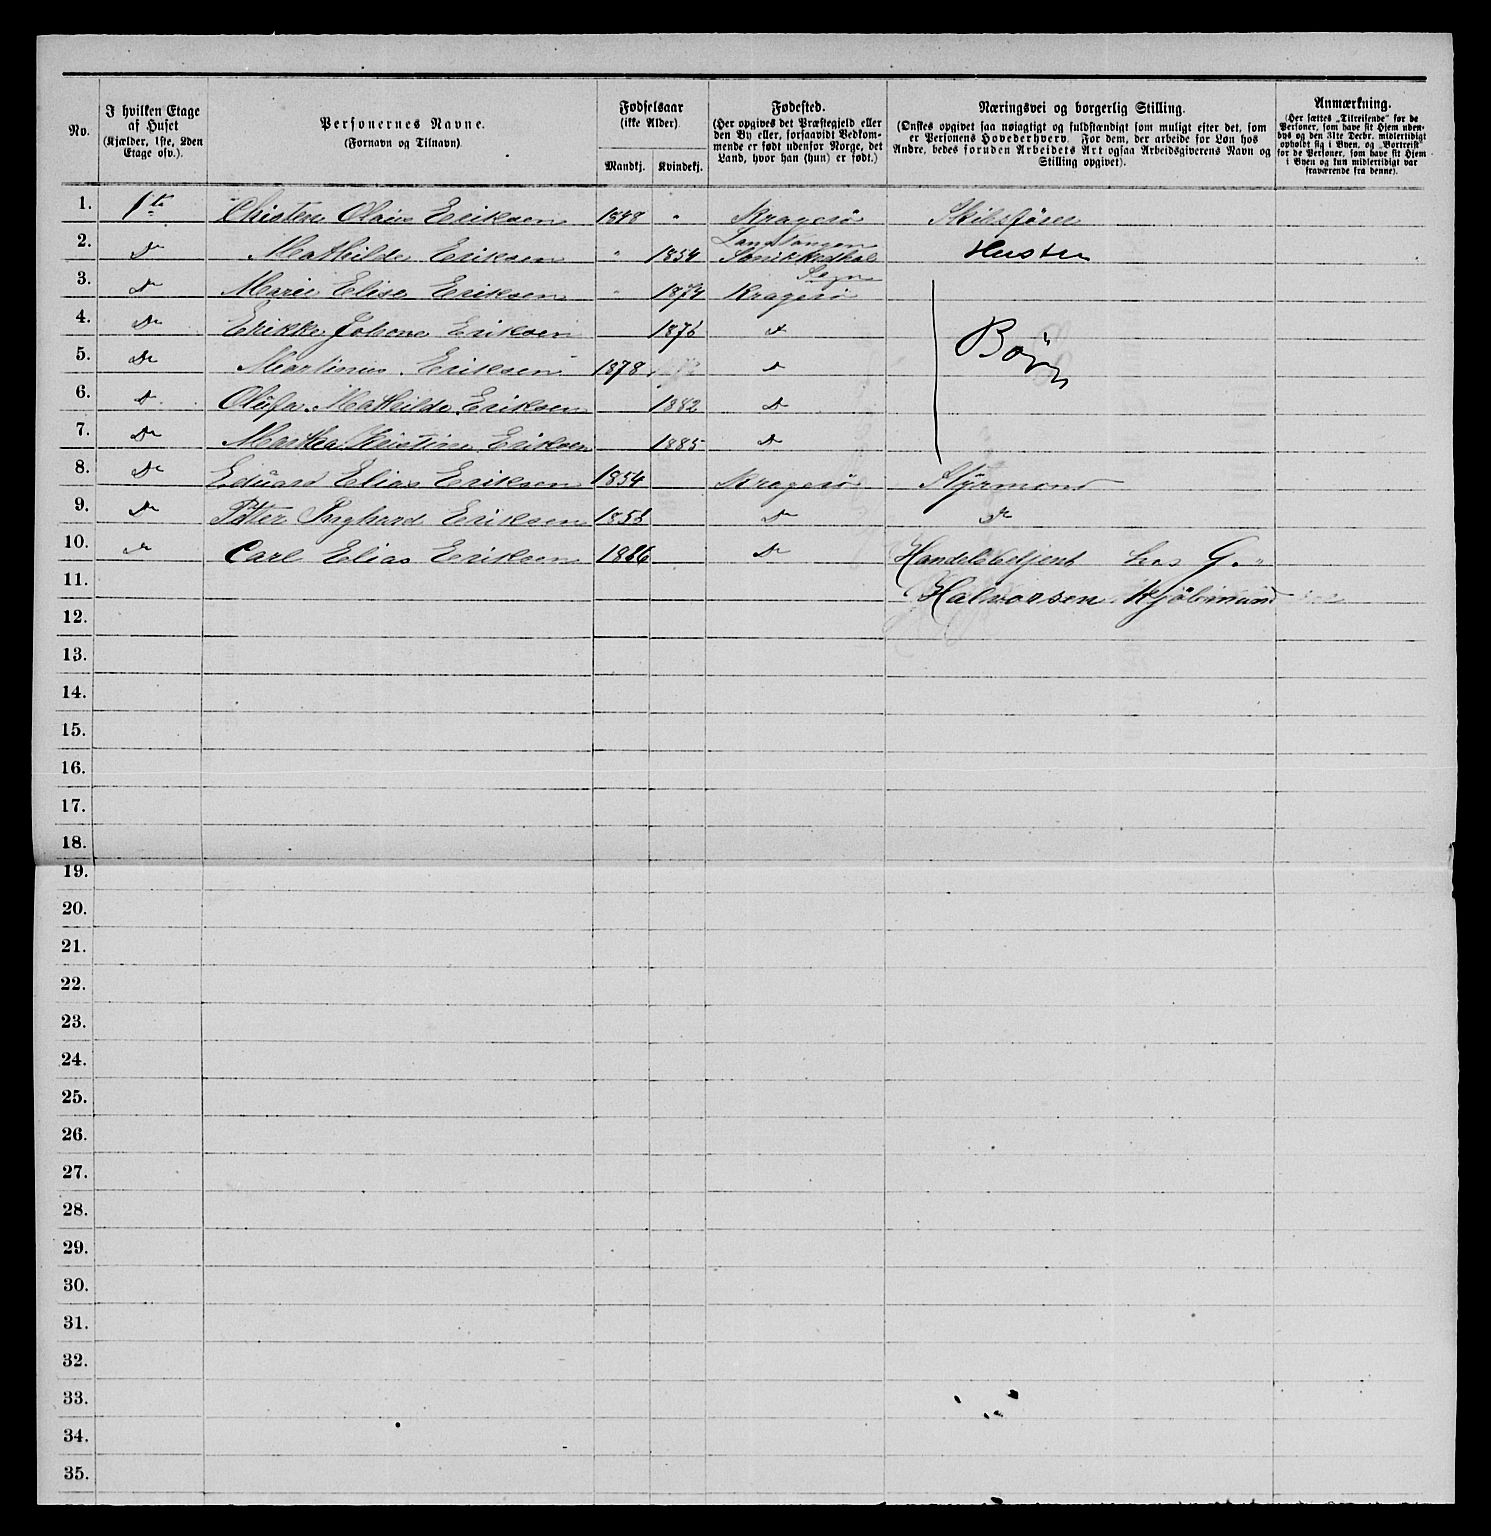 No.
I hvilken Etage
af Huset
(Kjælder, 1ste, 2den
Etage osv.).
Personernes Navne.
(Fornavn og Tilnavn).
Fødselsaar
(ikke Alder).
Mandkj. Kvindekj.
Fødested.
(Her opgives det Præstegjeld eller
den By eller, forsaavidt Vedkom-
mende er født udenfor Norge, det
Land, hvor han (hun) er født.)
Næringsvei og borgerlig Stilling.
(Ønskes opgivet saa nøiagtigt og fuldstændigt som muligt efter det, som
er Personens Hovederhverv. For dem, der arbeide for Løn hos
Andre, bedes foruden Arbeidets Art ogsaa Arbeidsgiverens Navn og
Stilling opgivet).
Anmærkning.
(Her sættes "Tilreisende" for de
Personer, som have sit Hjem uden-
bys og den 31te Decbr. midlertidigt
opholdt sig i Byen, og "Bortreist"
for de Personer, som have sit Hjem
i Byen og kun midlertidigt var
fraværende fra denne).
1. 1ste Christen Olaus Eriksen 1848 " Kragerø Skibsfører
2. Do Mathilde Eriksen " 1854 Hustru
3. Do Marie Elise Eriksen " 1874 Kragerø
4. Do Erikke Johane Eriksen 1876 d Børn
5. Do Martinus Eriksen 1878 d
6. D Olufa Mathilde Eriksen 1882 D
7. Do Marthea Kristine Eriksen 1885 D
8. Do Eduard Elias Eriksen 1854 Kragerø Styrmand
9. Do Petter Eriksen 1856 Do do
10. do Carl Elias Eriksen 1866 Do Handelsbetjent hos G.
11. Halvorsen Kjøbmand
12.
13.
14.
15.
16.
17.
18.
19.
20.
21.
22.
23.
24.
25.
26.
27.
28.
29.
30.
31.
32.
33.
34.
35.